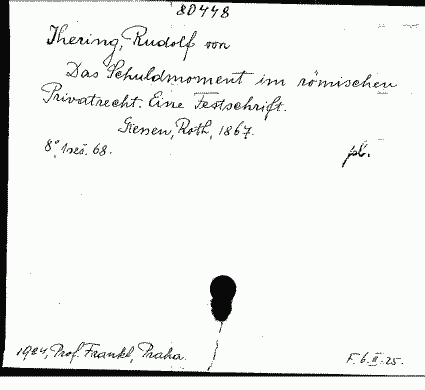 80448
Ihering, Rudolf von
Das Schuldmoment im römischen
Privatrecht. Eine Festschrift.
Giessen, Roth, 1867.
8°, 1 seš. 68. pb.
1924, Prof. Frankl, Praha. F. 6. II. 25.